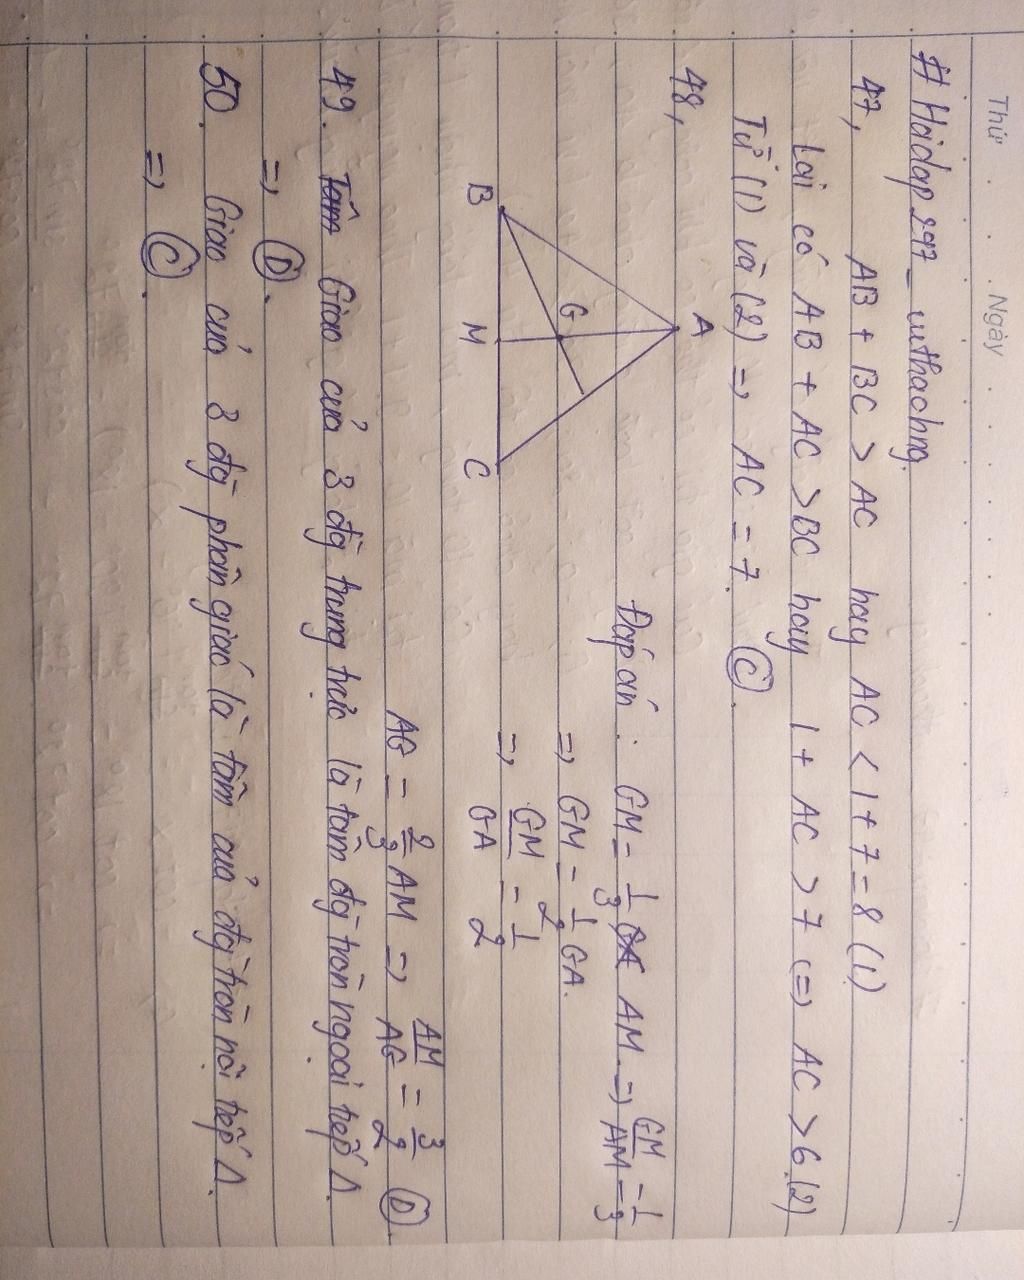 Thứ Ngày
# Hoidap247_withaohng.
47, AB + BC > AC hay AC < 1 + 7 = 8 (1)
Lại có AB + AC > BC hay 1 + AC > 7 (=) AC > 6 (2)
Từ (1) và (2) => AC = 7. (C).
48,
A
G
B M C
Đáp án : GM = 1/3 AM. => GM/AM = 1/3
=> GM = 1/2 GA.
=> GM/GA = 1/2
AG = 2/3 AM => AM/AG = 3/2 (D).
49. Giao của 3 đg trung trực là tâm đg tròn ngoại tiếp Δ.
=> (D).
50. Giao của 3 đg phân giác là tâm của đg tròn nội tiếp Δ.
=> (C).